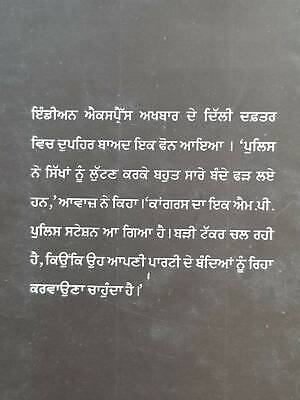 ਇੰਡੀਅਨ ਐਕਸਪ੍ਰੈੱਸ ਅਖਬਾਰ ਦੇ ਦਿੱਲੀ ਦਫ਼ਤਰ
ਵਿਚ ਦੁਪਹਿਰ ਬਾਅਦ ਇਕ ਫੋਨ ਆਇਆ । ‘ਪੁਲਿਸ
ਨੇ ਸਿੱਖਾਂ ਨੂੰ ਲੁੱਟਣ ਕਰਕੇ ਬਹੁਤ ਸਾਰੇ ਬੰਦੇ ਫੜ ਲਏ
ਹਨ,’ ਆਵਾਜ਼ ਨੇ ਕਿਹਾ। ‘ਕਾਂਗਰਸ ਦਾ ਇਕ ਐਮ.ਪੀ.
ਪੁਲਿਸ ਸਟੇਸ਼ਨ ਆ ਗਿਆ ਹੈ। ਬੜੀ ਟੱਕਰ ਚਲ ਰਹੀ
ਹੈ, ਕਿਉਂਕਿ ਉਹ ਆਪਣੀ ਪਾਰਟੀ ਦੇ ਬੰਦਿਆਂ ਨੂੰ ਰਿਹਾ
ਕਰਵਾਉਣਾ ਚਾਹੁੰਦਾ ਹੈ।’